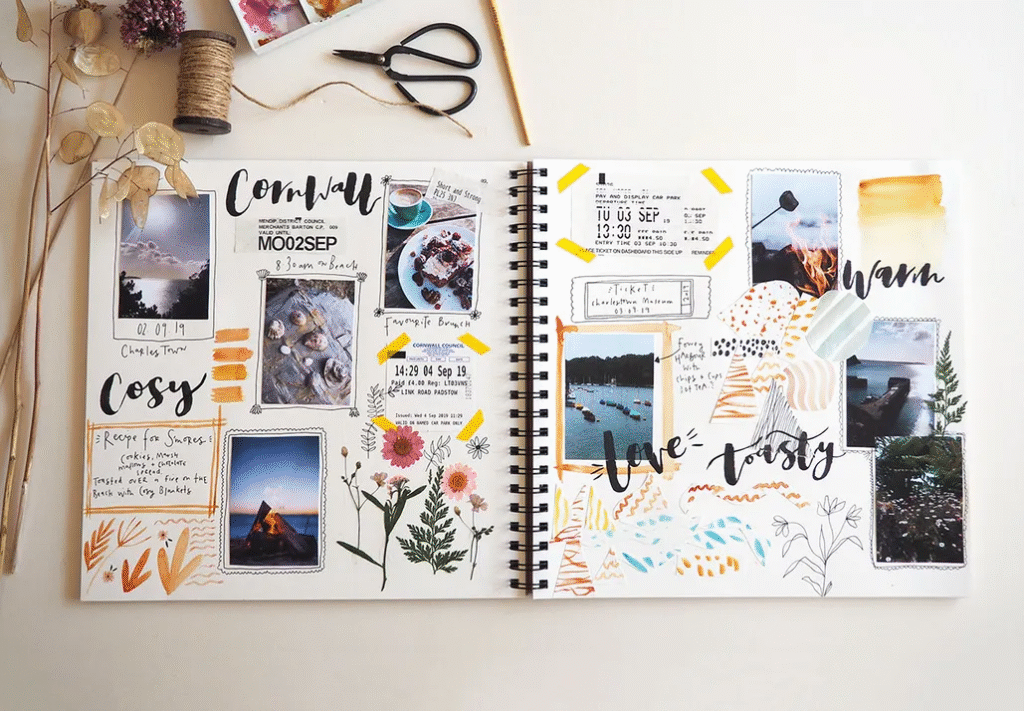 Cornwall
MENDIP DISTRICT COUNCIL
MERCHANTS BARTON C.P. 009
VALID UNTIL:
MO02SEP
8.30am on Beach
Short and Strong
02 09 19
Charles Town
Favourite Brunch
Cosy
CORNWALL COUNCIL
14:29 04 Sep 19
Paid £4.00 Reg: LT03VNS
LINK ROAD PADSTOW
Issued: Wed 4 Sep 2019 11:29
VALID ON NAMED CAR PARK ONLY
Recipe for Smores
Cookies, Marsh
mallows + chocolate
spread.
Toasted over a fire on the
Beach with Cosy Blankets
PAY AND DISPLAY CAR PARK
DEPARTURE TIME
TU 03 SEP
13:30
ENTRY TIME 03 SEP 10:30
PLACE TICKET ON DASHBOARD THIS SIDE UP
Ticket
Charlestown Museum
03 09 19
Warm
Harbour
with
chips + Cups
of TEA!
Love
toasty